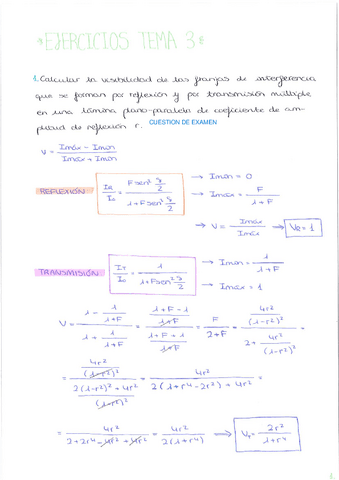 *EJERCICIOS TEMA 3*
1. Calcular la visibilidad de las franjas de interferencia
que se forman por reflexión y por transmisión múltiple
en una lámina plano-paralela de coeficiente de am-
plitud de reflexión r. CUESTION DE EXAMEN
V = (Imáx - Imin) / (Imáx + Imin)
REFLEXIÓN IR/I0 = (F sen² δ/2) / (1 + F sen² δ/2) → Imin = 0
→ Imáx = F / (1+F)
→ V = Imáx / Imáx → VR = 1
TRANSMISIÓN IT/I0 = 1 / (1 + F sen² δ/2) → Imin = 1 / (1+F)
→ Imáx = 1
V = (1 - 1/(1+F)) / (1 + 1/(1+F)) = ((1+F-1)/(1+F)) / ((1+F+1)/(1+F)) = F / (2+F) = (4r²/(1-r²)²) / (2 + 4r²/(1-r²)²) =
= (4r²/(1-r²)²) / ((2(1-r²)² + 4r²)/(1-r²)²) = 4r² / (2(1+r⁴-2r²) + 4r²) =
= 4r² / (2+2r⁴-4r²+4r²) = 4r² / (2(1+r⁴)) → VT = 2r² / (1+r⁴)